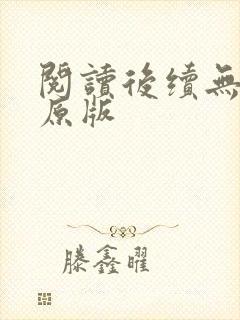 閱讀後續無
原版
滕鑫曜